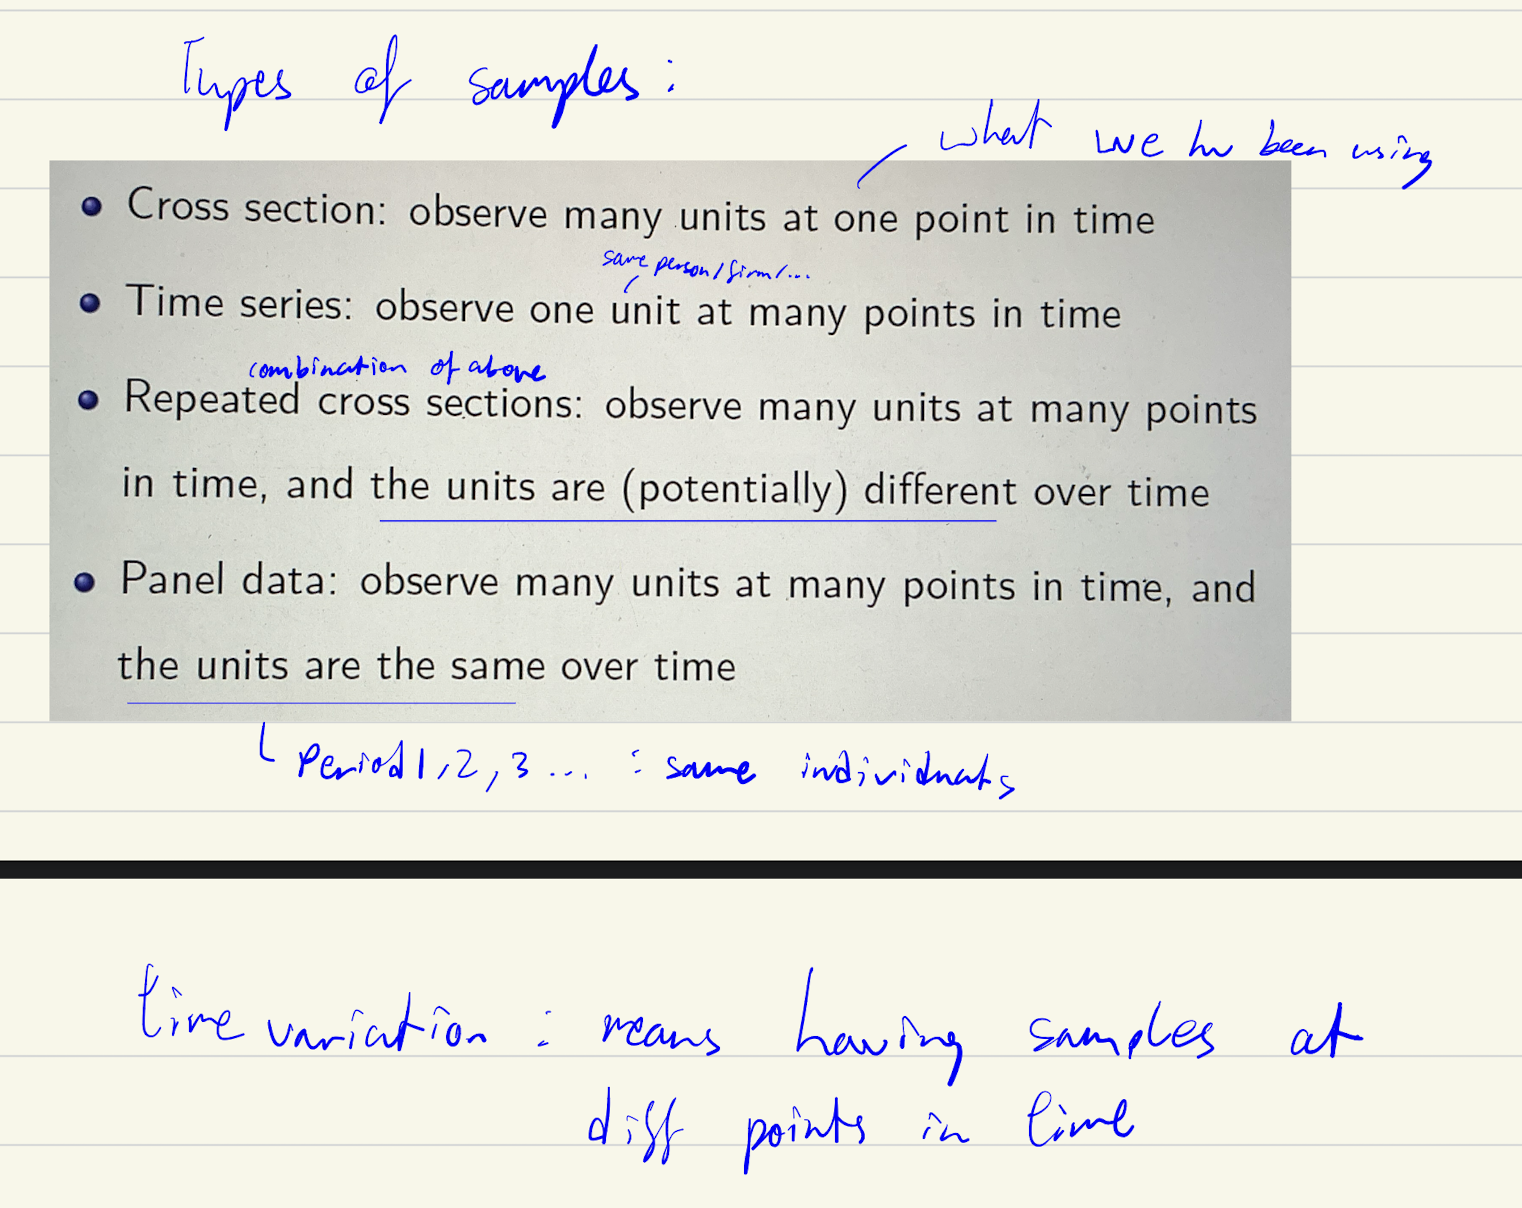 Types of samples:
what we hv been using
• Cross section: observe many units at one point in time
same person/firm/...
• Time series: observe one unit at many points in time
combination of above
• Repeated cross sections: observe many units at many points
in time, and the units are (potentially) different over time
• Panel data: observe many units at many points in time, and
the units are the same over time
Period 1, 2, 3 ... : same individuals
time variation : means having samples at
diff points in time